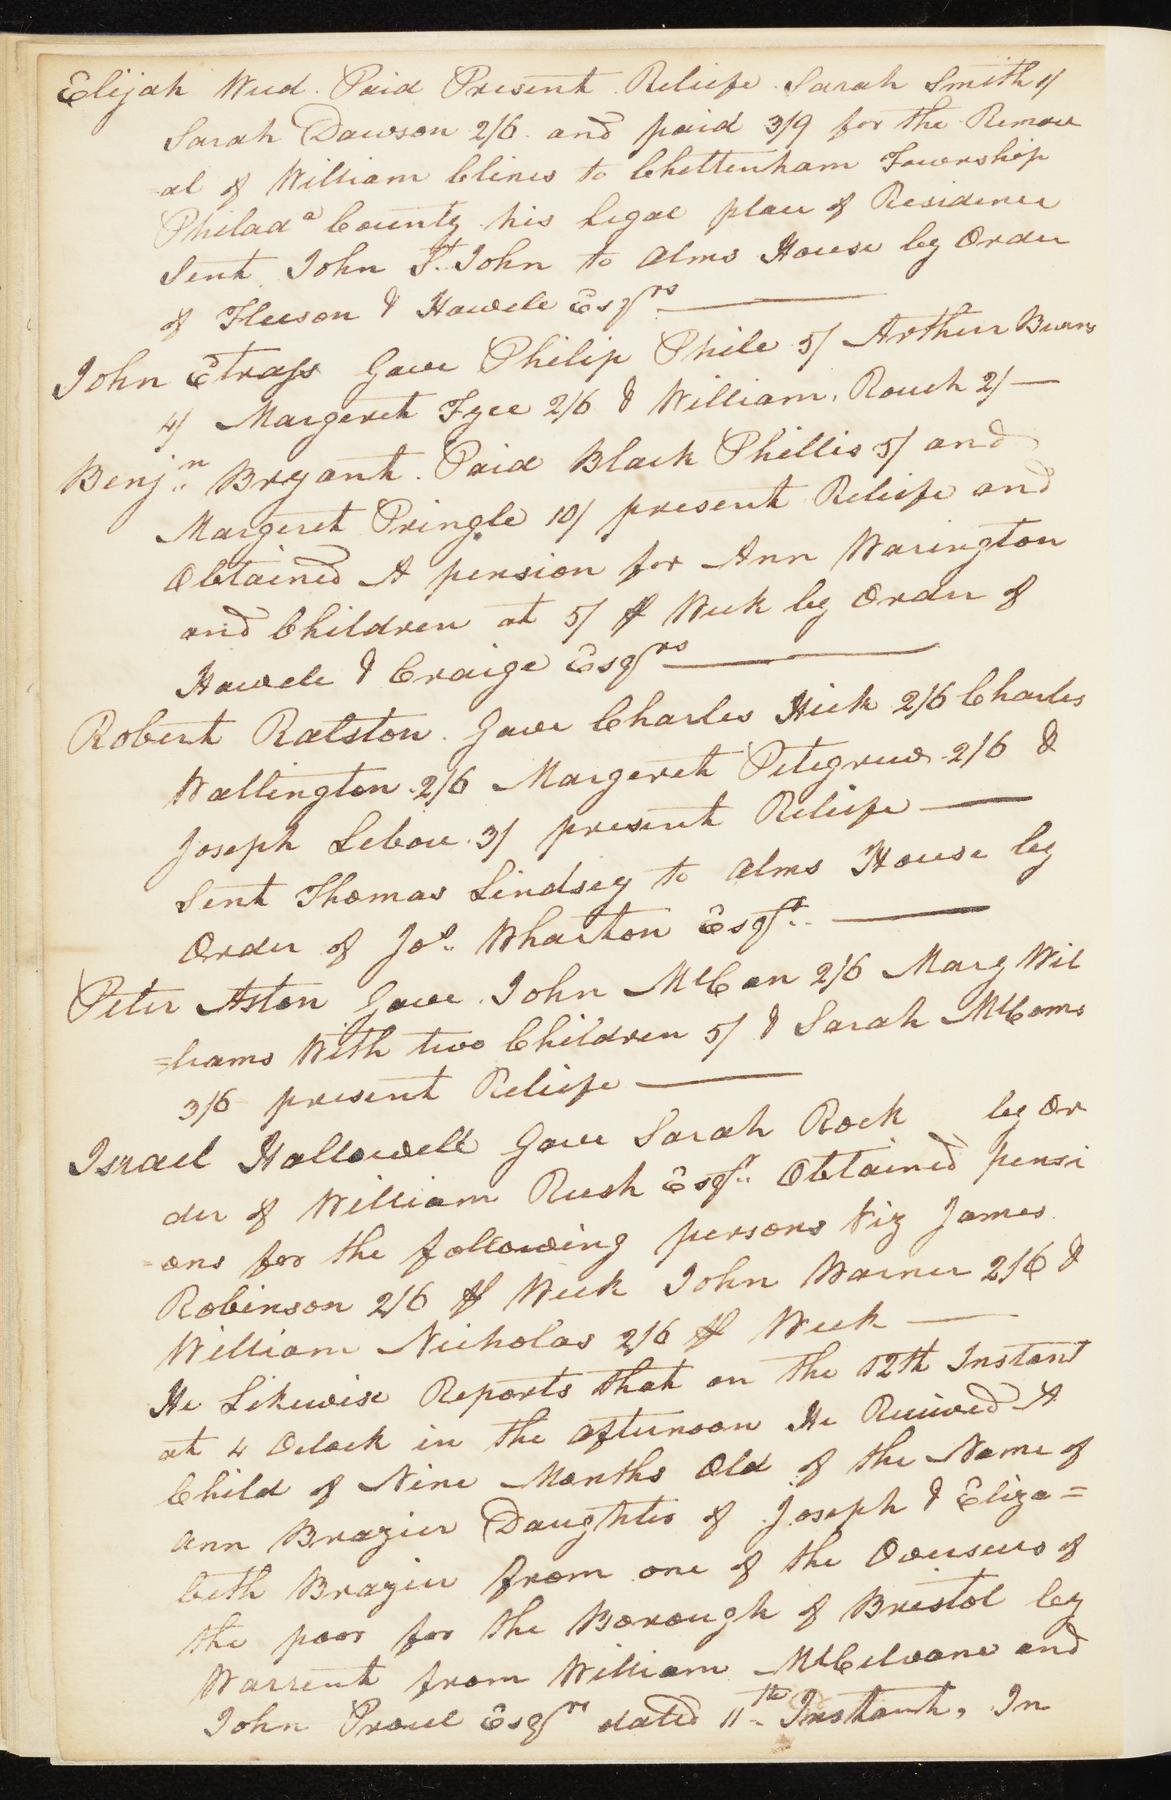 Elijah Weed. Paid Present Reliefe Sarah Smith 1/
Sarah Dawson 2/6 and paid 3/9 for the Remov
=al of William Clines to Cheltenham Township
Philad.a County his Legal place of Residence
Sent John St. John to Alms House by Order
of Fleeson & Howell Esqrs
John Strass Gave Philip Phile 5/ Arthur Burns
4/ Margeret Fyee 2/6 & William Roush 2/
Benj.n Bryant. Paid Black Phillis 5/ and
Margeret Pringle 10/ present Reliefe and
Obtained A pension for Ann Warington
and Children at 5/ ⅌ Week by Order of
Howell & Craige Esqrs
Robert Ralston Gave Charles Hick 2/6 Charles
Wallington 2/6 Margereth Petegrew 2/6 &
Joseph Lebou 3/ present Reliefe
Sent Thomas Lindsey to Alms House by
Order of Jos. Wharton Esqr.
Peter Aston Gave John McCan 2/6 Marg Wil
=liams With two Children 5/ & Sarah McComs
3/6 present Reliefe
Israel Hallowell Gave Sarah Rock by Or
der of William Rush Esqr. Obtained pensi
=ons for the following persons Viz James
Robinson 2/6 ⅌ Week John Warner 2/6 &
William Nicholas 2/6 ⅌ Week
He Likewise Reports that on the 12th Instant
at 4 Oclock in the afternoon He Received A
Child of Nine Months Old of the Name of
Ann Brazier Daughter of Joseph & Eliza=
beth Brazier from one of the Overseers of
the poor for the Borough of Bristol by
Warrent from William McIlvane and
John Proul Esqrs dated 11th Instant, In